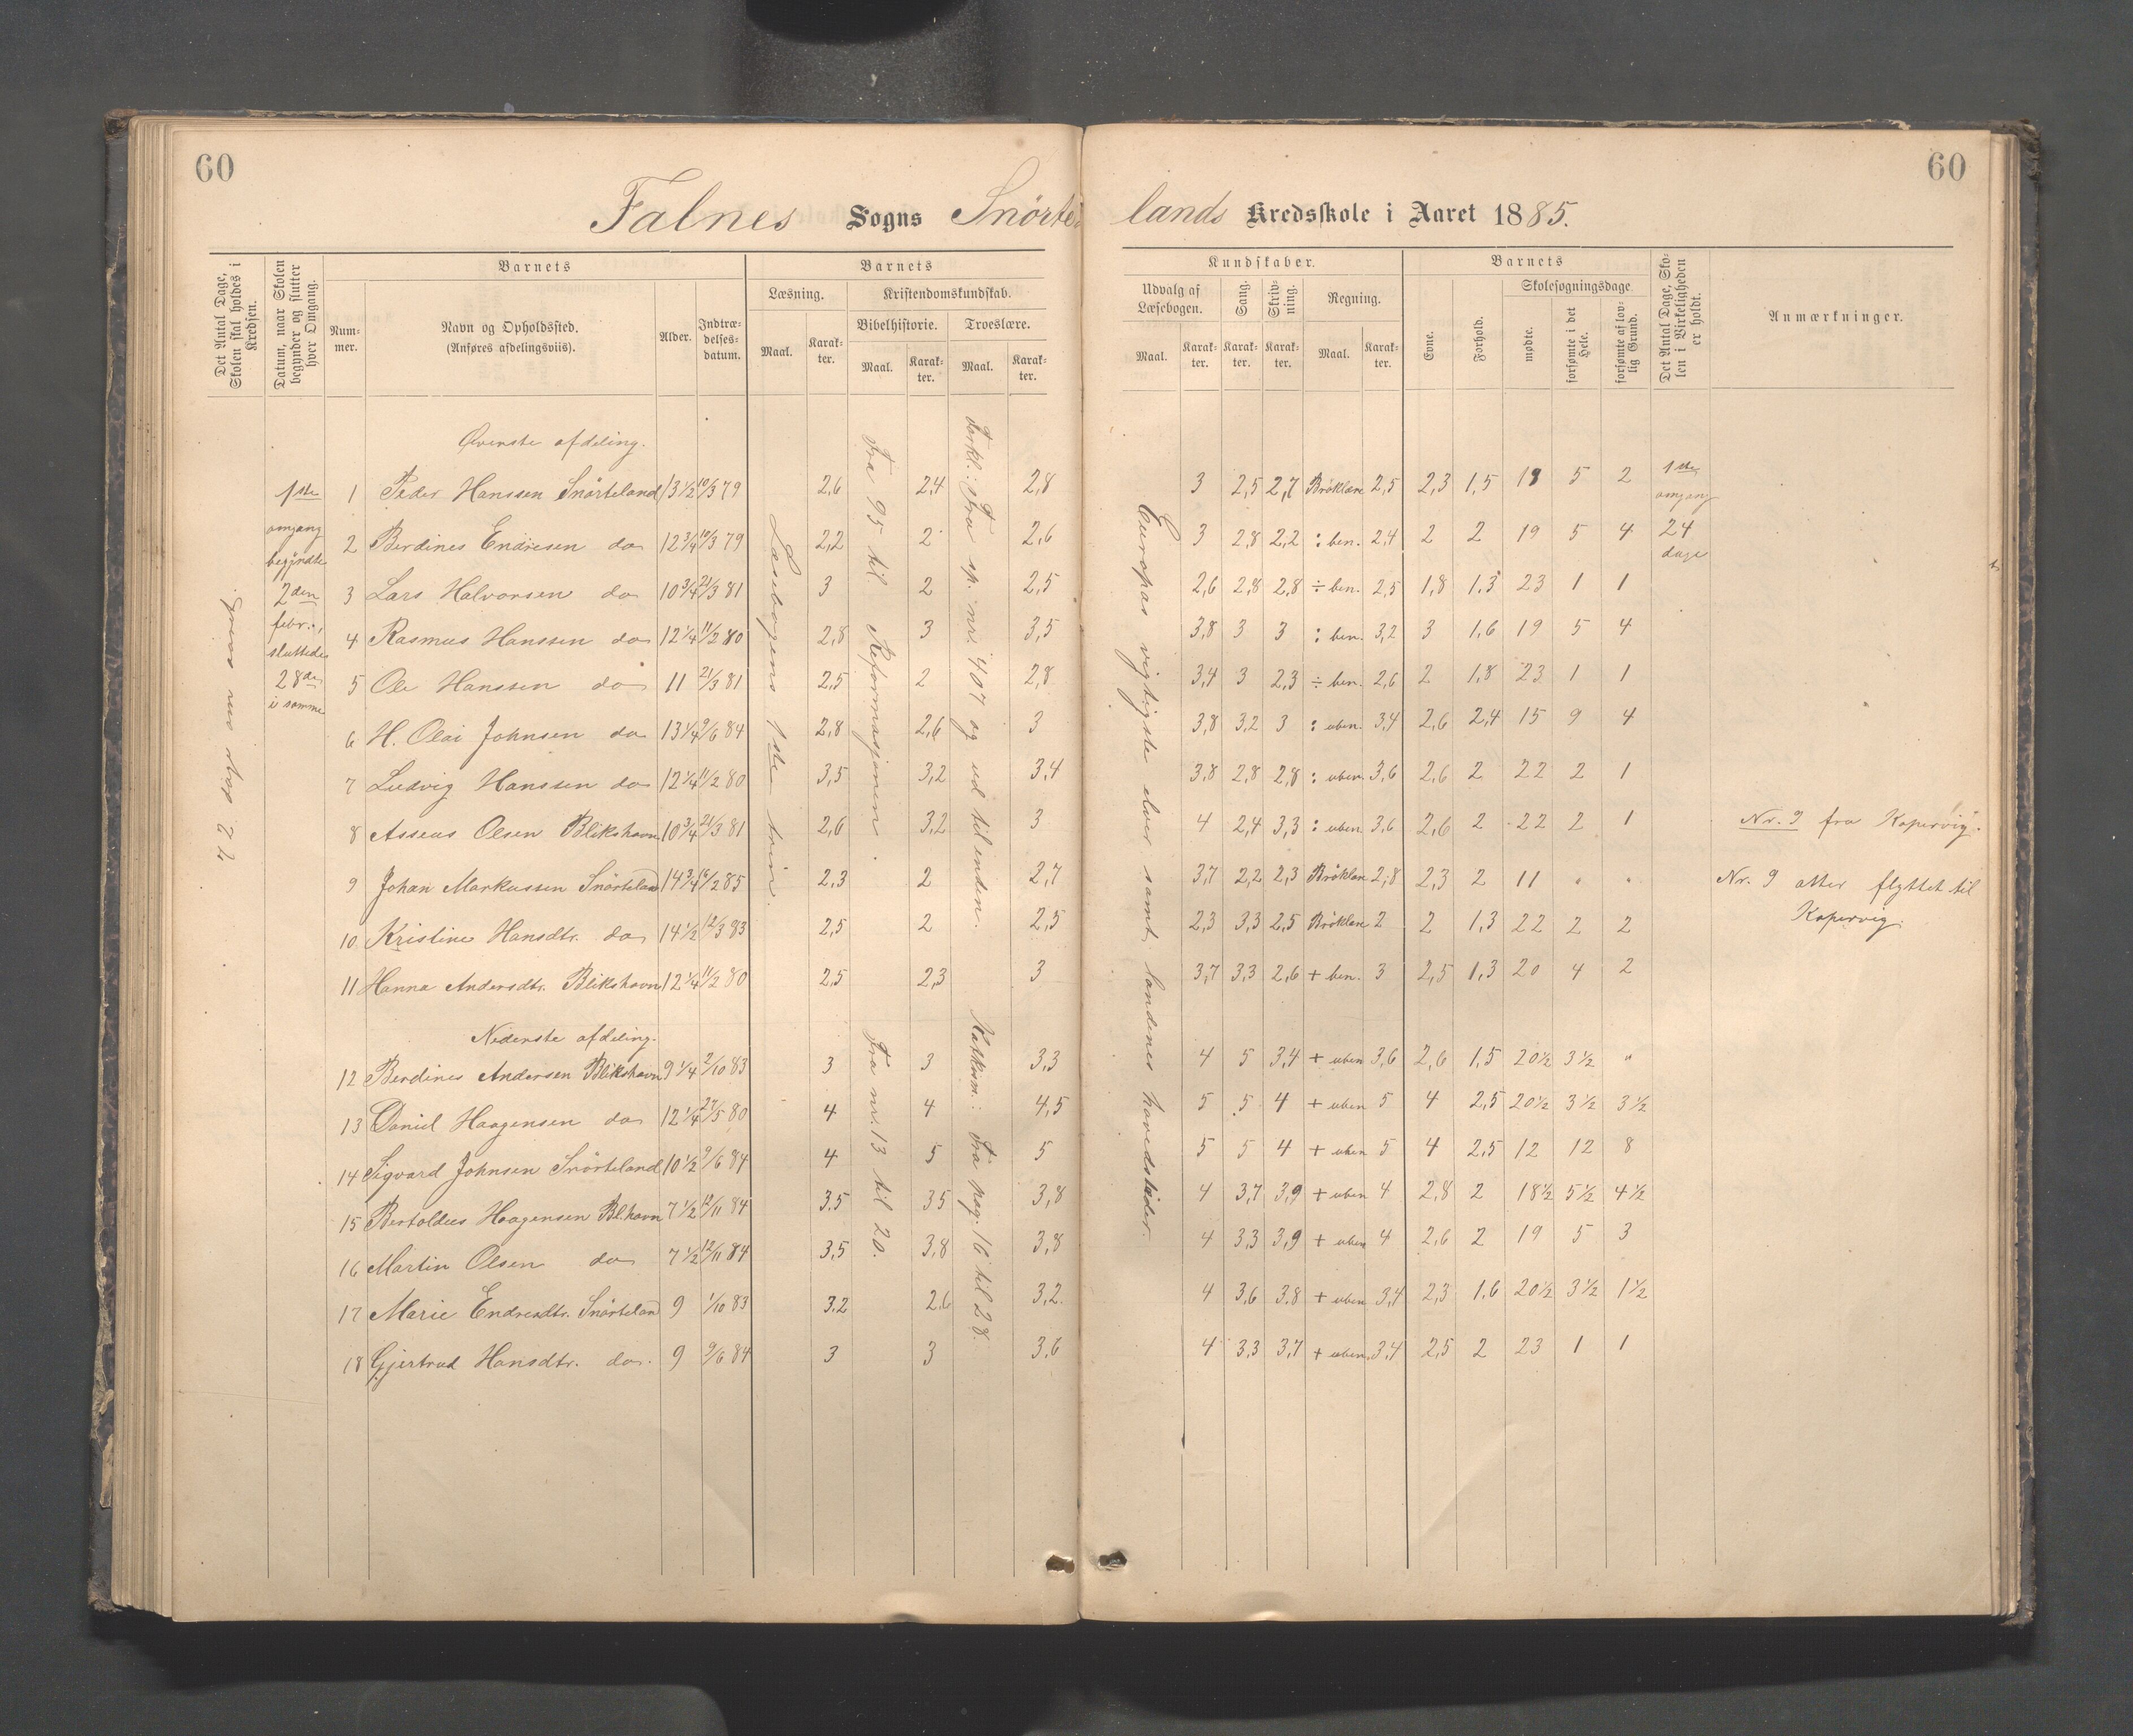 60
60
Falnes Sogns Snörte lands Kredsskole i Aaret 1885.
Det Antal Dage, Skolen skal holdes i Kredsen.
Datum, naar Skolen begynder og slutter hver Omgang.
Barnets
Nummer.
Navn og Opholdssted.
(Anføres afdelingsviis).
Alder.
Indtrædelsesdatum.
Barnets
Læsning.
Maal.
Karakter.
Kristendomskundskab.
Bibelhistorie.
Maal.
Karakter.
Troeslære.
Maal.
Karakter.
Kundskaber.
Udvalg af Læsebogen.
Maal.
Karakter.
Sang.
Karakter.
Skrivning.
Karakter.
Regning.
Maal.
Karakter.
Barnets
Evne.
Forhold.
Skolesøgningsdage.
mødte.
forsømte i det Hele.
forsømte af lovlig Grund.
Det Antal Dage, Skolen i Virkeligheden er holdt.
Anmærkninger.
1ste
omgang
begyndte
2den
febr.,
sluttedes
28de
i samme
Læsebogens 1ste trin.
Fra 95 til Reformasjonen.
Forkl.: Fra sp. nr. 407 og ud til enden.
Europas vigtigste elver samt landenes hovedstæder.
Øverste afdeling.
1 Peder Hanssen Snörteland 13 1/2 10/3 79 2,6 2,4 2,8 3 2,5 2,7 Bröklære 2,5 2,3 1,5 19 5 2 1ste omgang
2 Berdines Endresen do 12 3/4 10/3 79 2,2 2 2,6 3 2,8 2,2 : ben. 2,4 2 2 19 5 4 24 dage
3 Lars Halvorsen do 10 3/4 21/3 81 3 2 2,5 2,6 2,8 2,8 ÷ ben. 2,5 1,8 1,3 23 1 1
4 Rasmus Hanssen do 12 1/4 11/2 80 2,8 3 3,5 3,8 3 3 : ben. 3,2 3 1,6 19 5 4
5 Ole Hanssen do 11 21/3 81 2,5 2 2,8 3,4 3 2,3 ÷ ben. 2,6 2 1,8 23 1 1
6 H. Olai Johnsen do 13 1/4 9/6 84 2,8 2,6 3 3,8 3,2 3 : uben. 3,4 2,6 2,4 15 9 4
7 Ludvig Hanssen do 12 1/4 11/2 80 3,5 3,2 3,4 3,8 2,8 2,8 : uben. 3,6 2,6 2 22 2 1
8 Asseus Olsen Blikshavn 10 3/4 21/3 81 2,6 3,2 3 4 2,4 3,3 : uben 3,6 2,6 2 22 2 1 Nr. 9 fra Kopervig.
9 Johan Markussen Snörteland 14 3/4 16/2 85 2,3 2 2,7 3,7 2,2 2,3 Bröklære 2,8 2,3 2 11 " " Nr. 9 atter flyttet til
Kopervig.
10 Kristine Hansdtr. do 14 1/2 12/3 83 2,5 2 2,5 2,3 3,3 2,5 Bröklære 2 2 1,3 22 2 2
11 Hanna Andersdtr. Blikshavn 12 1/4 11/2 80 2,5 2,3 3 3,7 3,3 2,6 + ben. 3 2,5 1,3 20 4 2
Nederste afdeling.
Fra nr. 13 til 20.
Katkism.: Fra pag. 16 til 28.
12 Berdines Andersen Blikshavn 9 1/4 2/10 83 3 3 3,3 4 5 3,4 + uben 3,6 2,6 1,5 20 1/2 3 1/2 "
13 Daniel Haagensen do 12 1/4 27/5 80 4 4 4,5 5 5 4 + uben 5 4 2,5 20 1/2 3 1/2 3 1/2
14 Sigvard Johnsen Snörteland 10 1/2 9/6 84 4 5 5 5 5 4 + uben 5 4 2,5 12 12 8
15 Bertoldus Haagensen Bl.havn 7 1/2 12/11 84 3,5 3,5 3,8 4 3,7 3,9 + uben 4 2,8 2 18 1/2 5 1/2 4 1/2
16 Martin Olsen do 7 1/2 12/11 84 3,5 3,8 3,8 4 3,3 3,9 + uben 4 2,6 2 19 5 3
17 Marie Endresdtr. Snörteland 9 1/10 83 3,2 2,6 3,2 4 3,6 3,8 + uben 3,4 2,3 1,6 20 1/2 3 1/2 1 1/2
18 Gjertrud Hansdtr. do. 9 9/6 84 3 3 3,6 4 3,3 3,7 + uben. 3,4 2,5 2 23 1 1